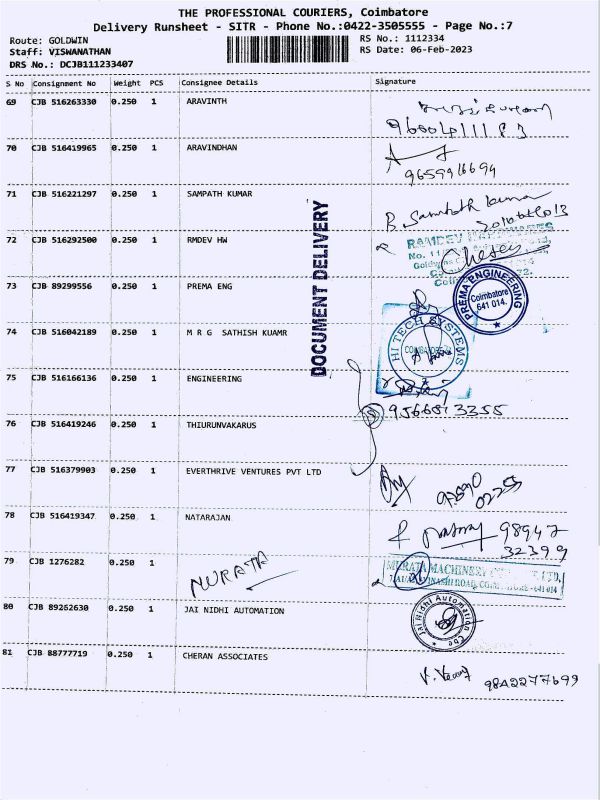 THE PROFESSIONAL COURIERS, Coimbatore
Delivery Runsheet - SITR - Phone No.:0422-3505555 - Page No.:7
Route: GOLDWIN
Staff: VISWANATHAN
DRS No.: DCJB111233407
RS No.: 1112334
RS Date: 06-Feb-2023
S No Consignment No Weight PCS Consignee Details Signature
69 CJB 516263330 0.250 1 ARAVINTH
70 CJB 516419965 0.250 1 ARAVINDHAN
9659916694
71 CJB 516221297 0.250 1 SAMPATH KUMAR
B. Sampath kumar
72 CJB 516292500 0.250 1 RMDEV HW
RAMDEV
73 CJB 89299556 0.250 1 PREMA ENG
PREMA ENGINEERING
Coimbatore
641 014.
DOCUMENT DELIVERY
74 CJB 516042189 0.250 1 M R G SATHISH KUAMR
HI TECH SYSTEMS
75 CJB 516166136 0.250 1 ENGINEERING
9566513255
76 CJB 516419246 0.250 1 THIURUNVAKARUS
77 CJB 516379903 0.250 1 EVERTHRIVE VENTURES PVT LTD
78 CJB 516419347 0.250 1 NATARAJAN
98947
32399
79 CJB 1276282 0.250 1
MURATA
MURATA MACHINERY
80 CJB 89262630 0.250 1 JAI NIDHI AUTOMATION
Jai Nidhi Automation Cbe
81 CJB 88777719 0.250 1 CHERAN ASSOCIATES
9842277699